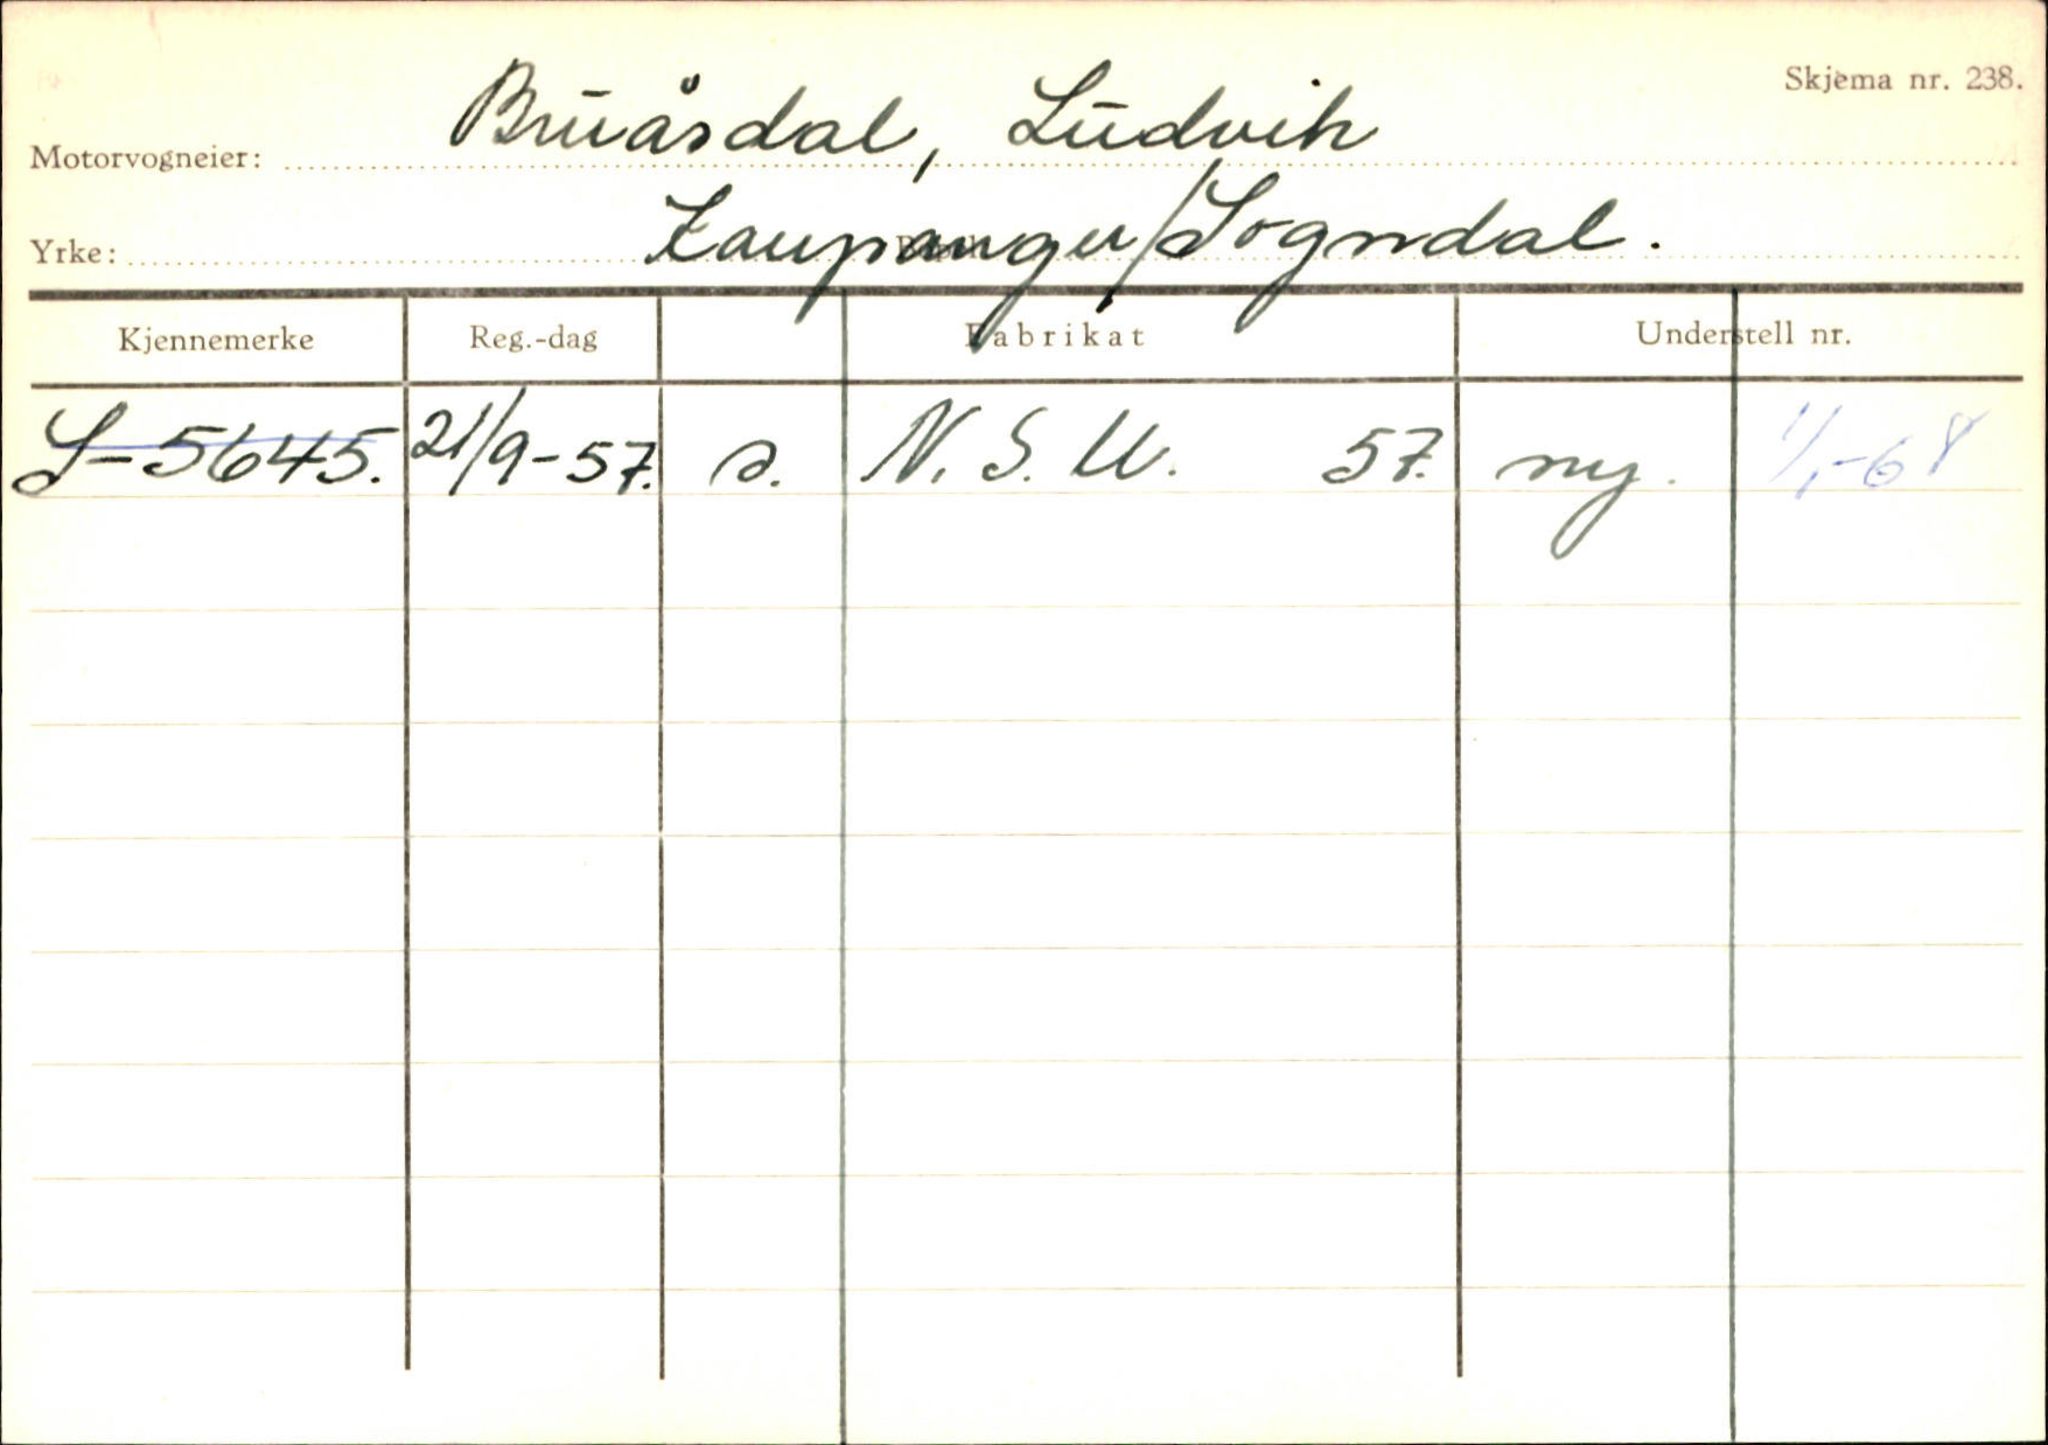 Skjema nr. 238.
Motorvogneier: Bruåsdal, Ludvik
Yrke: Kaupanger/Sogndal.
Kjennemerke Reg.-dag Fabrikat Understell nr.
S-5645. 21/9-57. s. N.S.U. 57. ny. 1/1-68